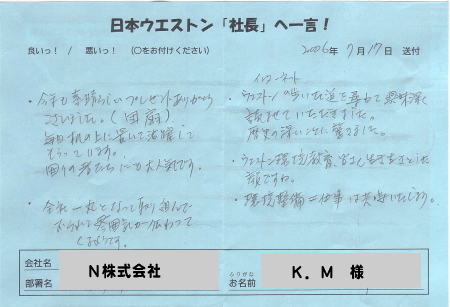 日本ウエストン「社長」へ一言!
良いっ! / 悪いっ! (○をお付けください)
2006年 7月17日 送付
・今年も素晴らしいプレゼントありがとう
ございました。(団扇)
毎日机の上に置いて活躍して
もらっています。
周りの者たちにも大人気です。
・会社一丸となって取り組んで
おられる雰囲気が伝わって
くるようです。
イエローネット
・ウエストンの歩いた道を
興味深く
読ませていただきました。
歴史の深いことに驚きました。
・ウエストン環境教育、皆さん生き生きとした
顔ですね。
・環境整備=仕事は共感いたします。
会社名 N株式会社
部署名
ふりがな
お名前 K.M 様